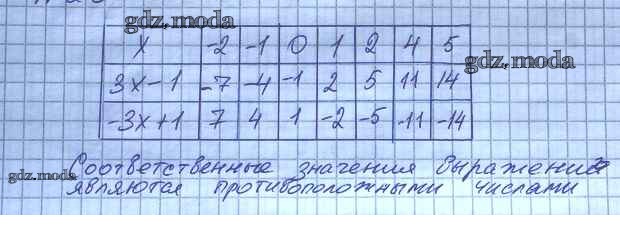 gdz.moda
x -2 -1 0 1 2 4 5
gdz.moda
3x-1 -7 -4 -1 2 5 11 14
-3x+1 7 4 1 -2 -5 -11 -14
Соответственные значения выражений
gdz.moda
являются противоположными числами
gdz.moda